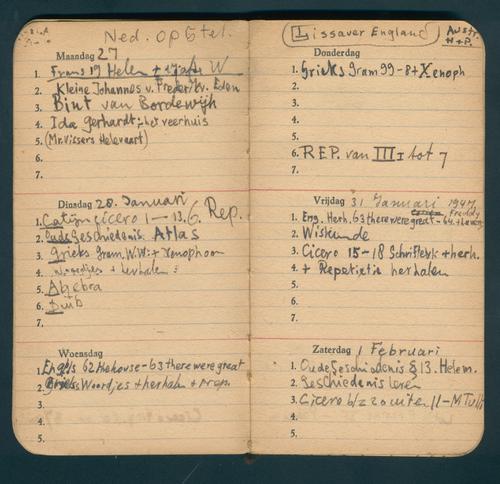 Ned. Opstel.
Maandag 27
1. Frans 19 Helen + W
2. Kleine Johannes v. Frederik v. Eden
3. Bint van Bordewijk
4. Ida Gerhardt; het veerhuis
5. (Mr. Vissers Hellevaart)
6.
7.
Dinsdag 28. Januari
1. Latijn Cicero 1 — 13. 6. Rep.
2. Oude Geschiedenis. Atlas
3. Grieks Gram. W.W. + Xenophon
4. Woordjes + herhalen
5. Algebra
6.
7.
Woensdag
1. Engels 62 Hehouse - 63 there were great
2. Grieks Woordjes + herhalen + Prep.
3.
4.
5.
(Lissauer England) Austr.
H + P.
Donderdag
1. Grieks Gram 99 - 8 + Xenoph
2.
3.
4.
5.
6. REP. van III I tot 7
7.
Vrijdag 31 Januari 1947
Freddy
1. Eng. Herh. 63 there were great - 64
2. Wiskunde
3. Cicero 15 - 18 Schriftelk + herh.
4. + Repetitie herhalen
5.
6.
7.
Zaterdag 1 Februari
1. Oude Geschiedenis § 13. Helem.
2. Geschiedenis leren
3. Cicero blz 20 uiten 11 - M Tulli
4.
5.